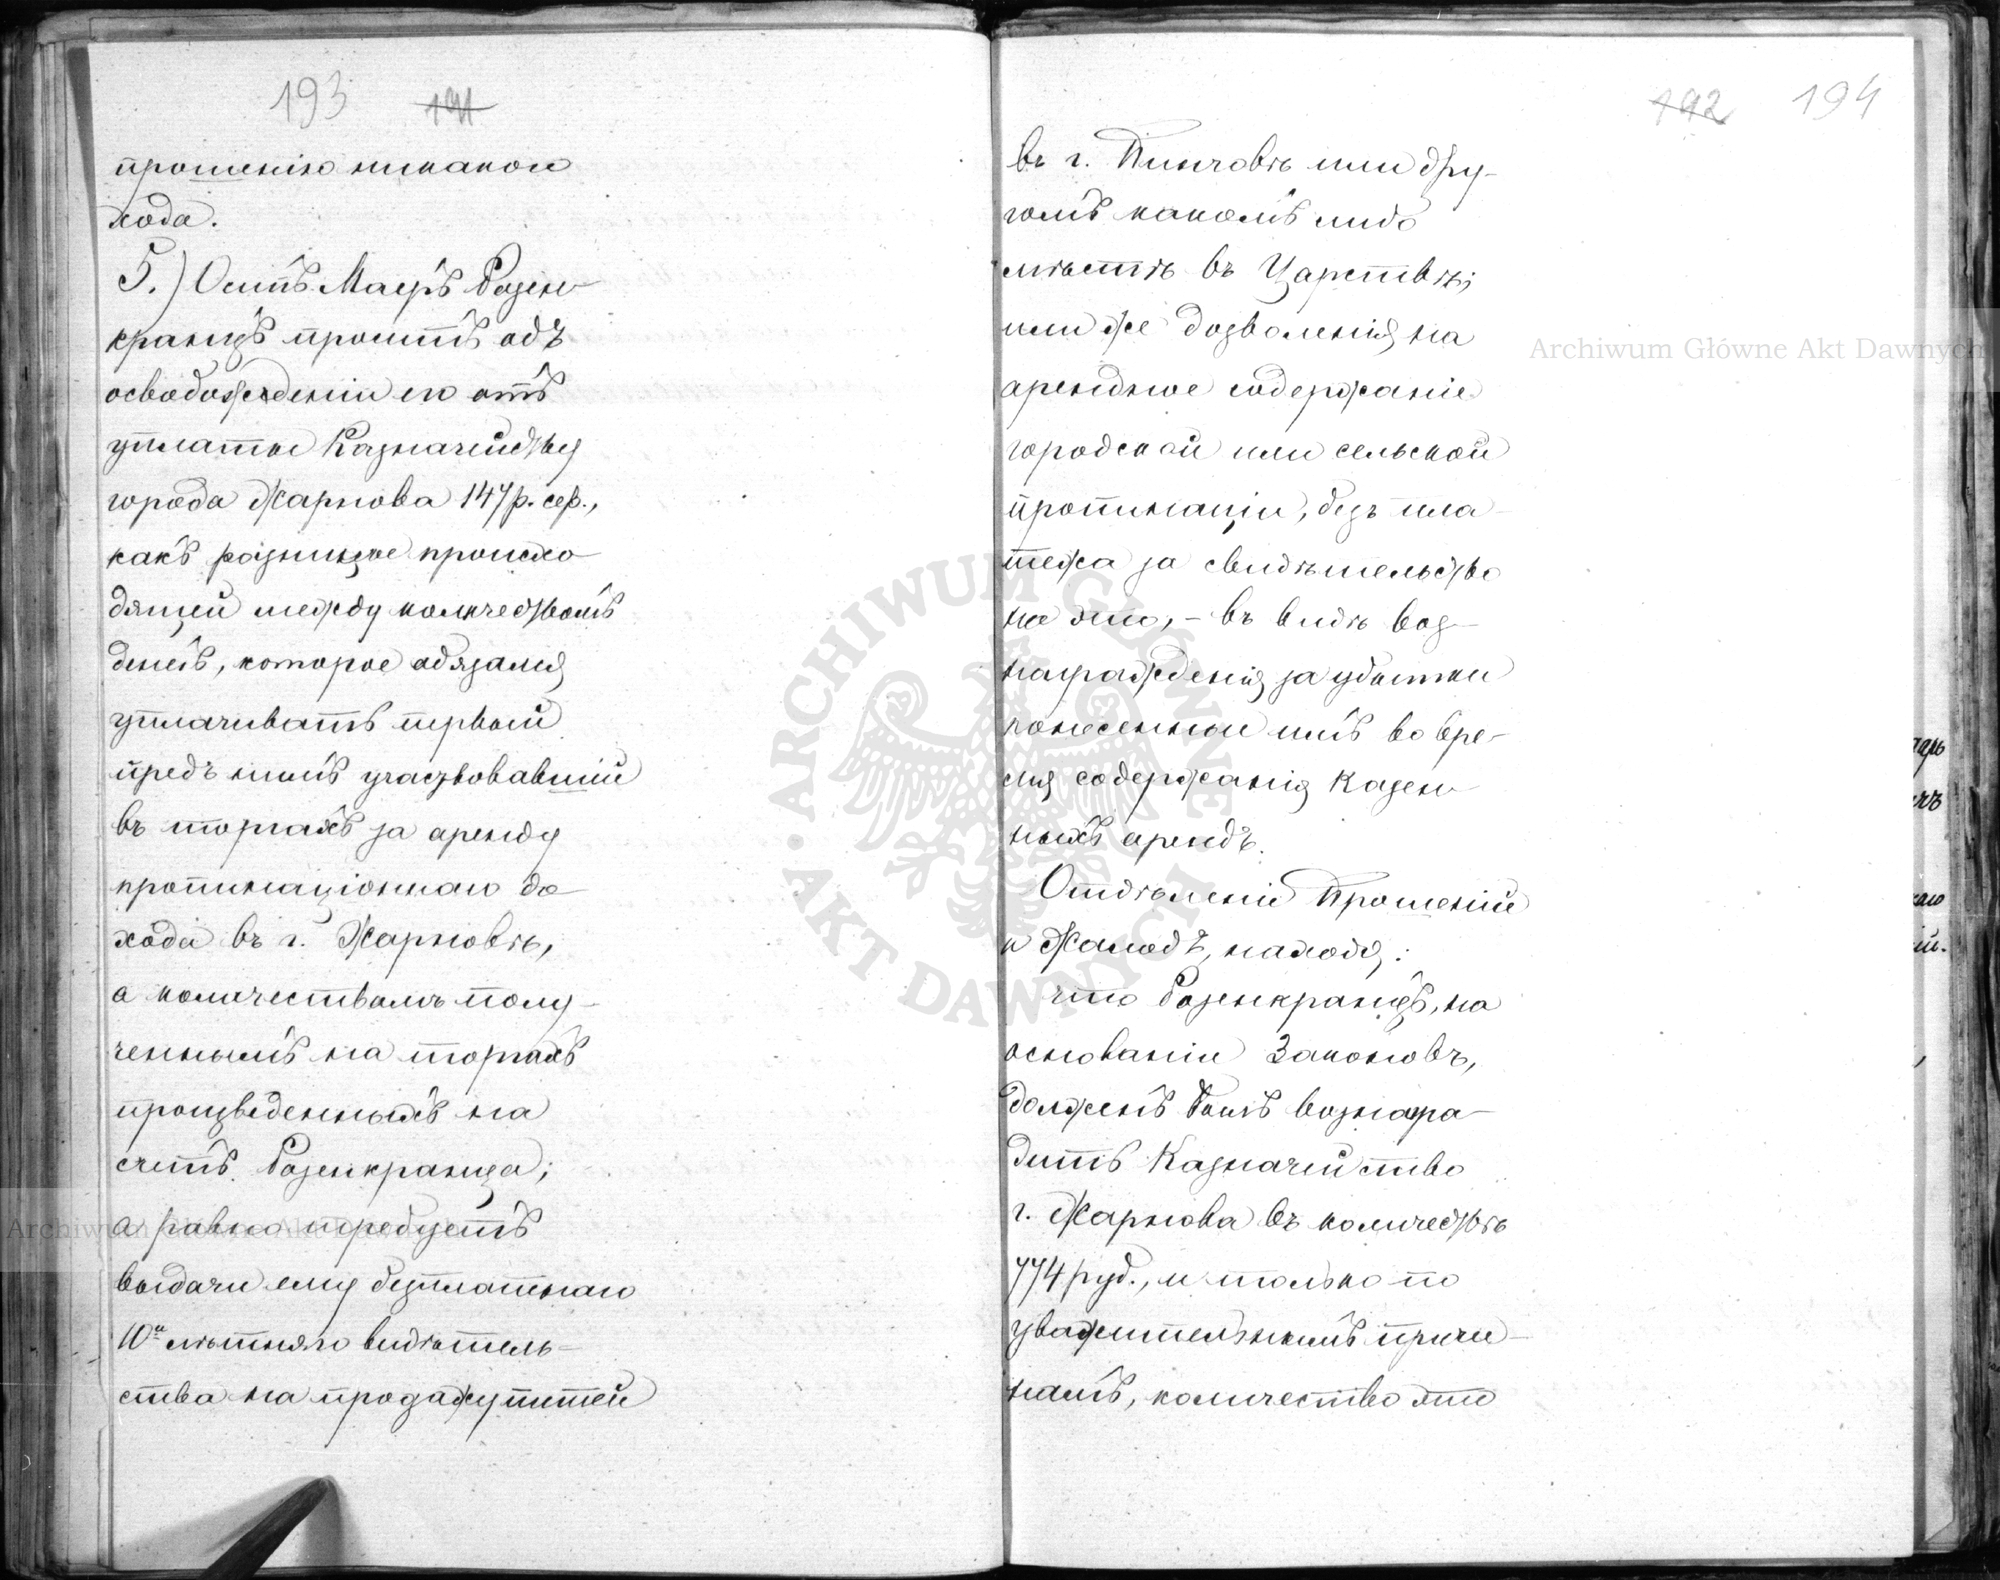 193 191
прошенію никакого
хода.
5.) Осипъ Маеръ Розен-
кранцъ проситъ объ
освобожденіи его отъ
уплаты Казначейству
города Жарнова 147 р. сер.,
какъ разницы происхо-
дящей между количествомъ
денегъ, которое обязался
уплачивать первый
предъ нимъ участвовавшій
въ торгахъ за аренду
пропинаціоннаго до-
хода въ г. Жарновѣ,
а количествомъ полу-
ченнымъ на торгахъ
произведенныхъ на
счетъ Розенкранца;
а равно требуетъ
выдачи ему безплатнаго
10и лѣтняго видѣтель-
ства на продажу питей
192 194
въ г. Пинчовѣ или дру-
гомъ какомъ либо
мѣстѣ въ Царствѣ;
или же дозволенія на
арендное содержаніе
городской или сельской
пропинаціи, безъ пла-
тежа за свидѣтельство
на это, - въ видѣ воз-
награжденія за убытки
понесенные имъ во вре-
мя содержанія казен-
ныхъ арендъ.
Отдѣленіе Прошеній
и Жалобъ, находя:
что Розенкранцъ, на
основаніи Законовъ,
долженъ былъ вознагра-
дить Казначейство
г. Жарнова въ количествѣ
774 руб., и только по
уважительнымъ причи-
намъ, количество это
Archiwum Główne Akt Dawnych
ARCHIWUM GŁÓWNE · AKT DAWNYCH ·